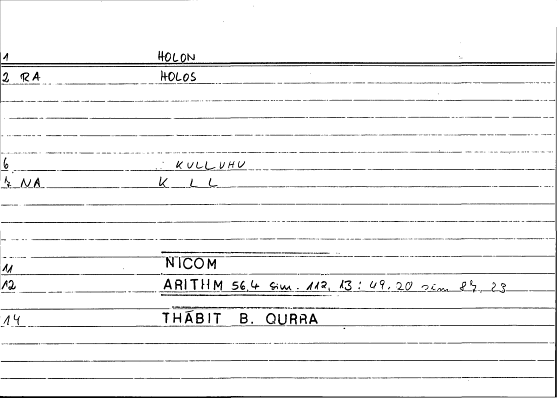 1 HOLON
2 RA HOLOS
6 KULLUHU
7 NA K L L
11 NICOM
12 ARITHM 56,4 sim. 112, 13 : 49,20 sim 84, 23
14 THĀBIT B. QURRA